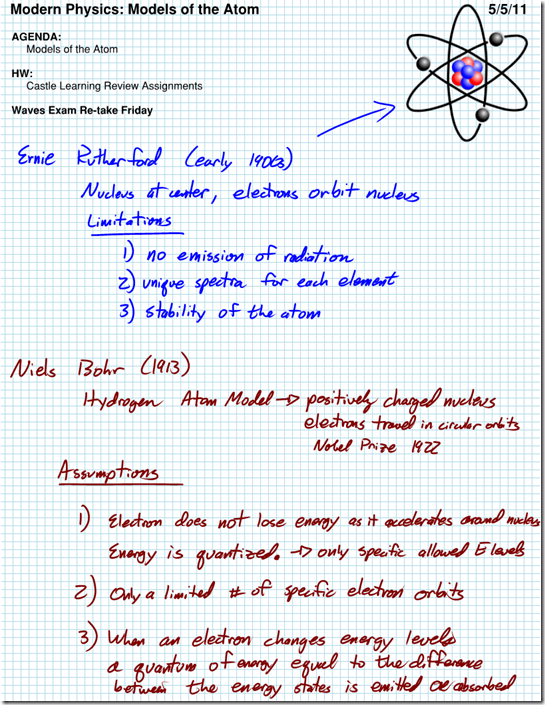 Modern Physics: Models of the Atom 5/5/11
AGENDA:
Models of the Atom
HW:
Castle Learning Review Assignments
Waves Exam Re-take Friday
Ernie Rutherford (early 1900s)
Nucleus at center, electrons orbit nucleus
Limitations
1) no emission of radiation
2) unique spectra for each element
3) stability of the atom
Niels Bohr (1913)
Hydrogen Atom Model → positively charged nucleus
electrons travel in circular orbits
Nobel Prize 1922
Assumptions
1) Electron does not lose energy as it accelerates around nucleus
Energy is quantized. → only specific allowed E levels
2) Only a limited # of specific electron orbits
3) When an electron changes energy levels
a quantum of energy equal to the difference
between the energy states is emitted or absorbed